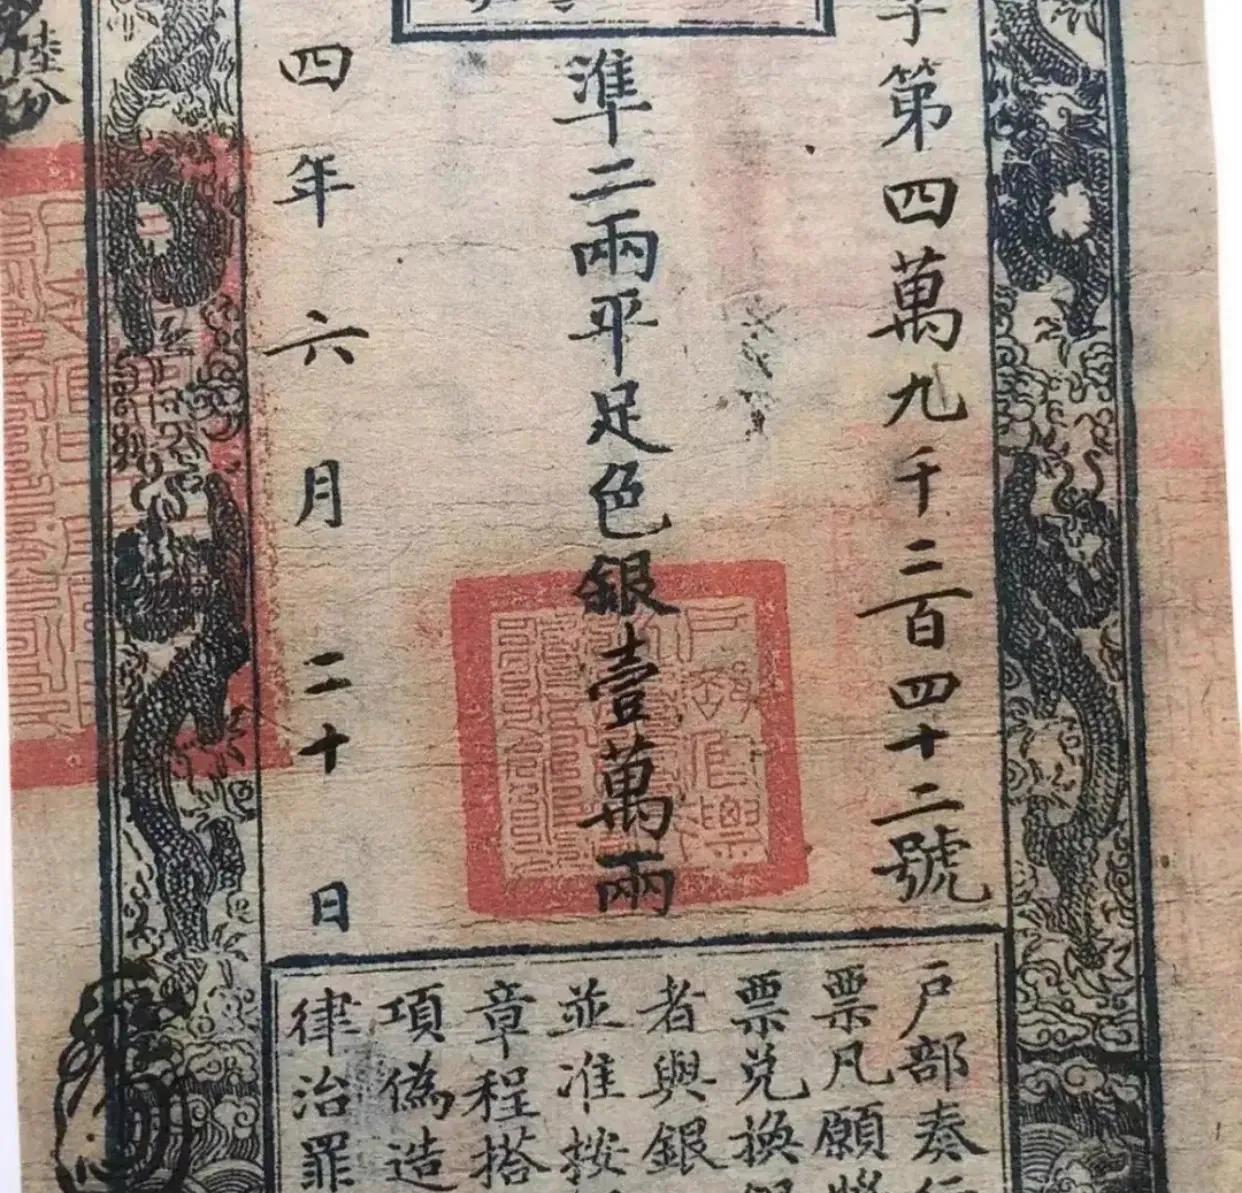 字第四萬九千二百四十二號
準二兩平足色銀壹萬兩
四年六月二十日
戶部奏行
票凡願將
票兌換銀
者與銀
並准按
章程搭
項偽造
律治罪
陸分